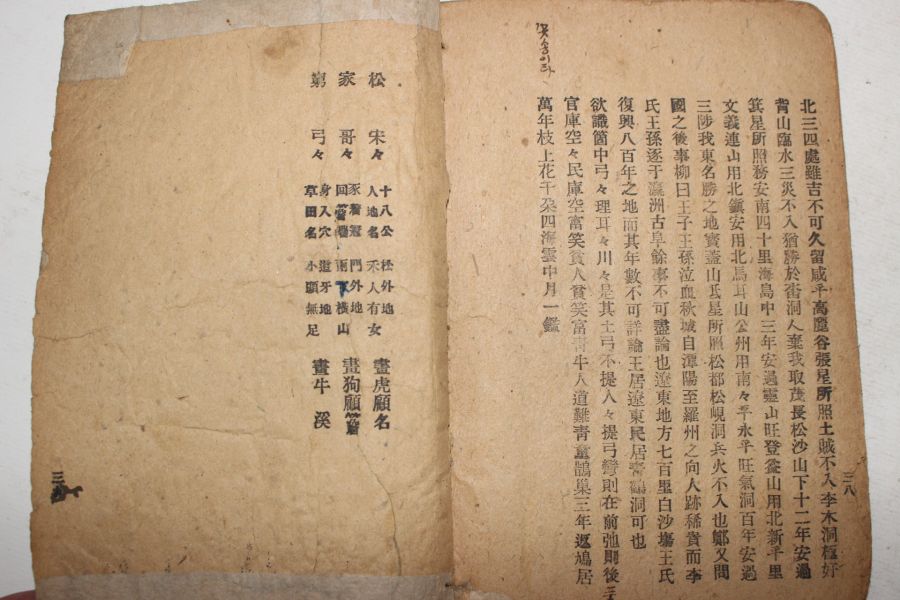 三八
北三四處雖吉不可久留咸平高廬谷張星所照土賊不入李木洞極好
背山臨水三災不入猶勝於畓洞人棄我取茂長松沙山下十二年安過
箕星所照務安南四十里海島中三年安過靈山旺登山用北新千里
文義連山用北鎭安用北馬耳山公州用南々平永平旺氣洞百年安過
三陟我東名勝之地實蓋山氐星所照松都松峴洞兵火不入也鄭又問
國之後事柳曰王子王孫泣血秋城自潭陽至羅州之向人跡稀貴而李
氏王孫逐于瀛洲古阜餘事不可盡論也遼東地方七百里白沙場王氏
復興八百年之地而其年數不可詳論王居遼東民居靑鶴洞可也
欲識箇中弓々理耳々川々是其土弓不提人々提弓彎則在前弛則後
官庫空々民庫空富笑貧人貧笑富靑牛人道難靑童鵲巢三年返鳩居
萬年枝上花千朶四海雲中月一鑑
松 宋々 十八公 松外地 畫虎顧名
人地名 禾人有女
家 哥々 家着冠 門外地 畫狗顧簷
回簷 雨下橫山
窮 弓々 身入穴 道牙地 畫牛溪
草田名 小頭無足